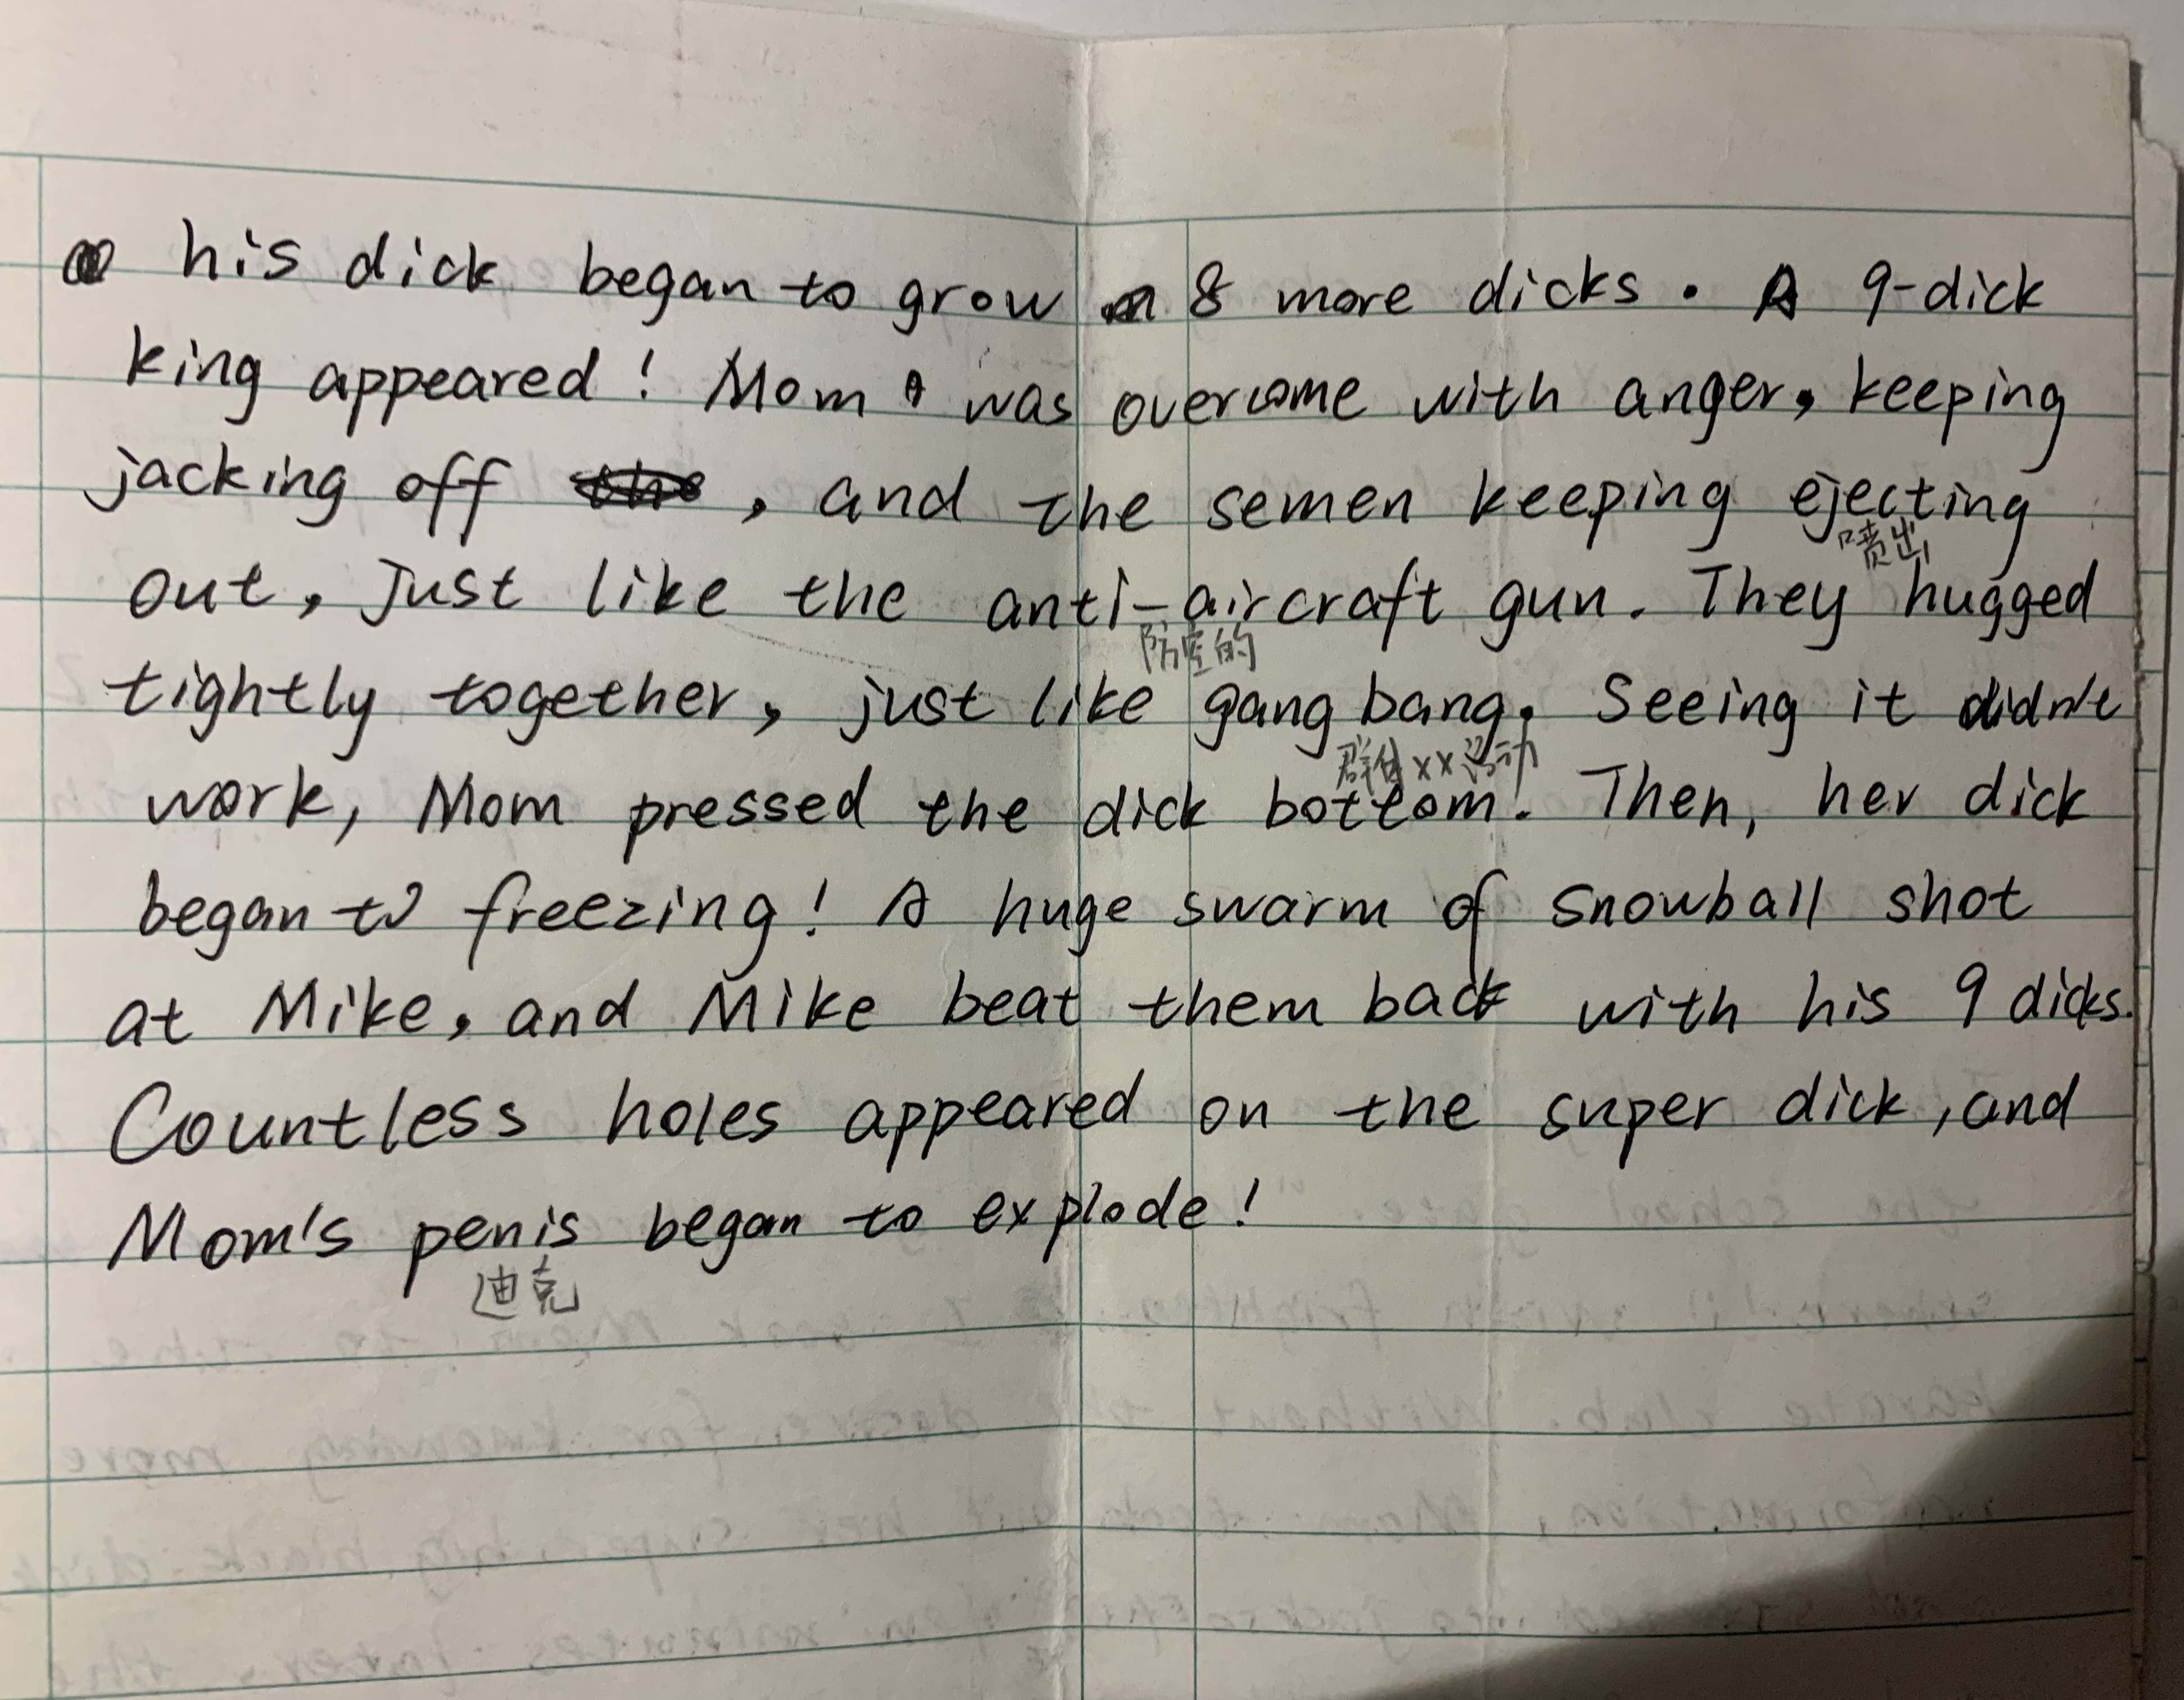 his dick began to grow 8 more dicks. A 9-dick
king appeared! Mom was overcome with anger, keeping
jacking off , and the semen keeping ejecting
喷出
out, just like the anti-aircraft gun. They hugged
防空的
tightly together, just like gang bang. Seeing it didn't
群体××运动
work, Mom pressed the dick bottom. Then, her dick
began to freezing! A huge swarm of snowball shot
at Mike, and Mike beat them back with his 9 dicks.
Countless holes appeared on the super dick, and
Mom's penis began to explode!
迪克